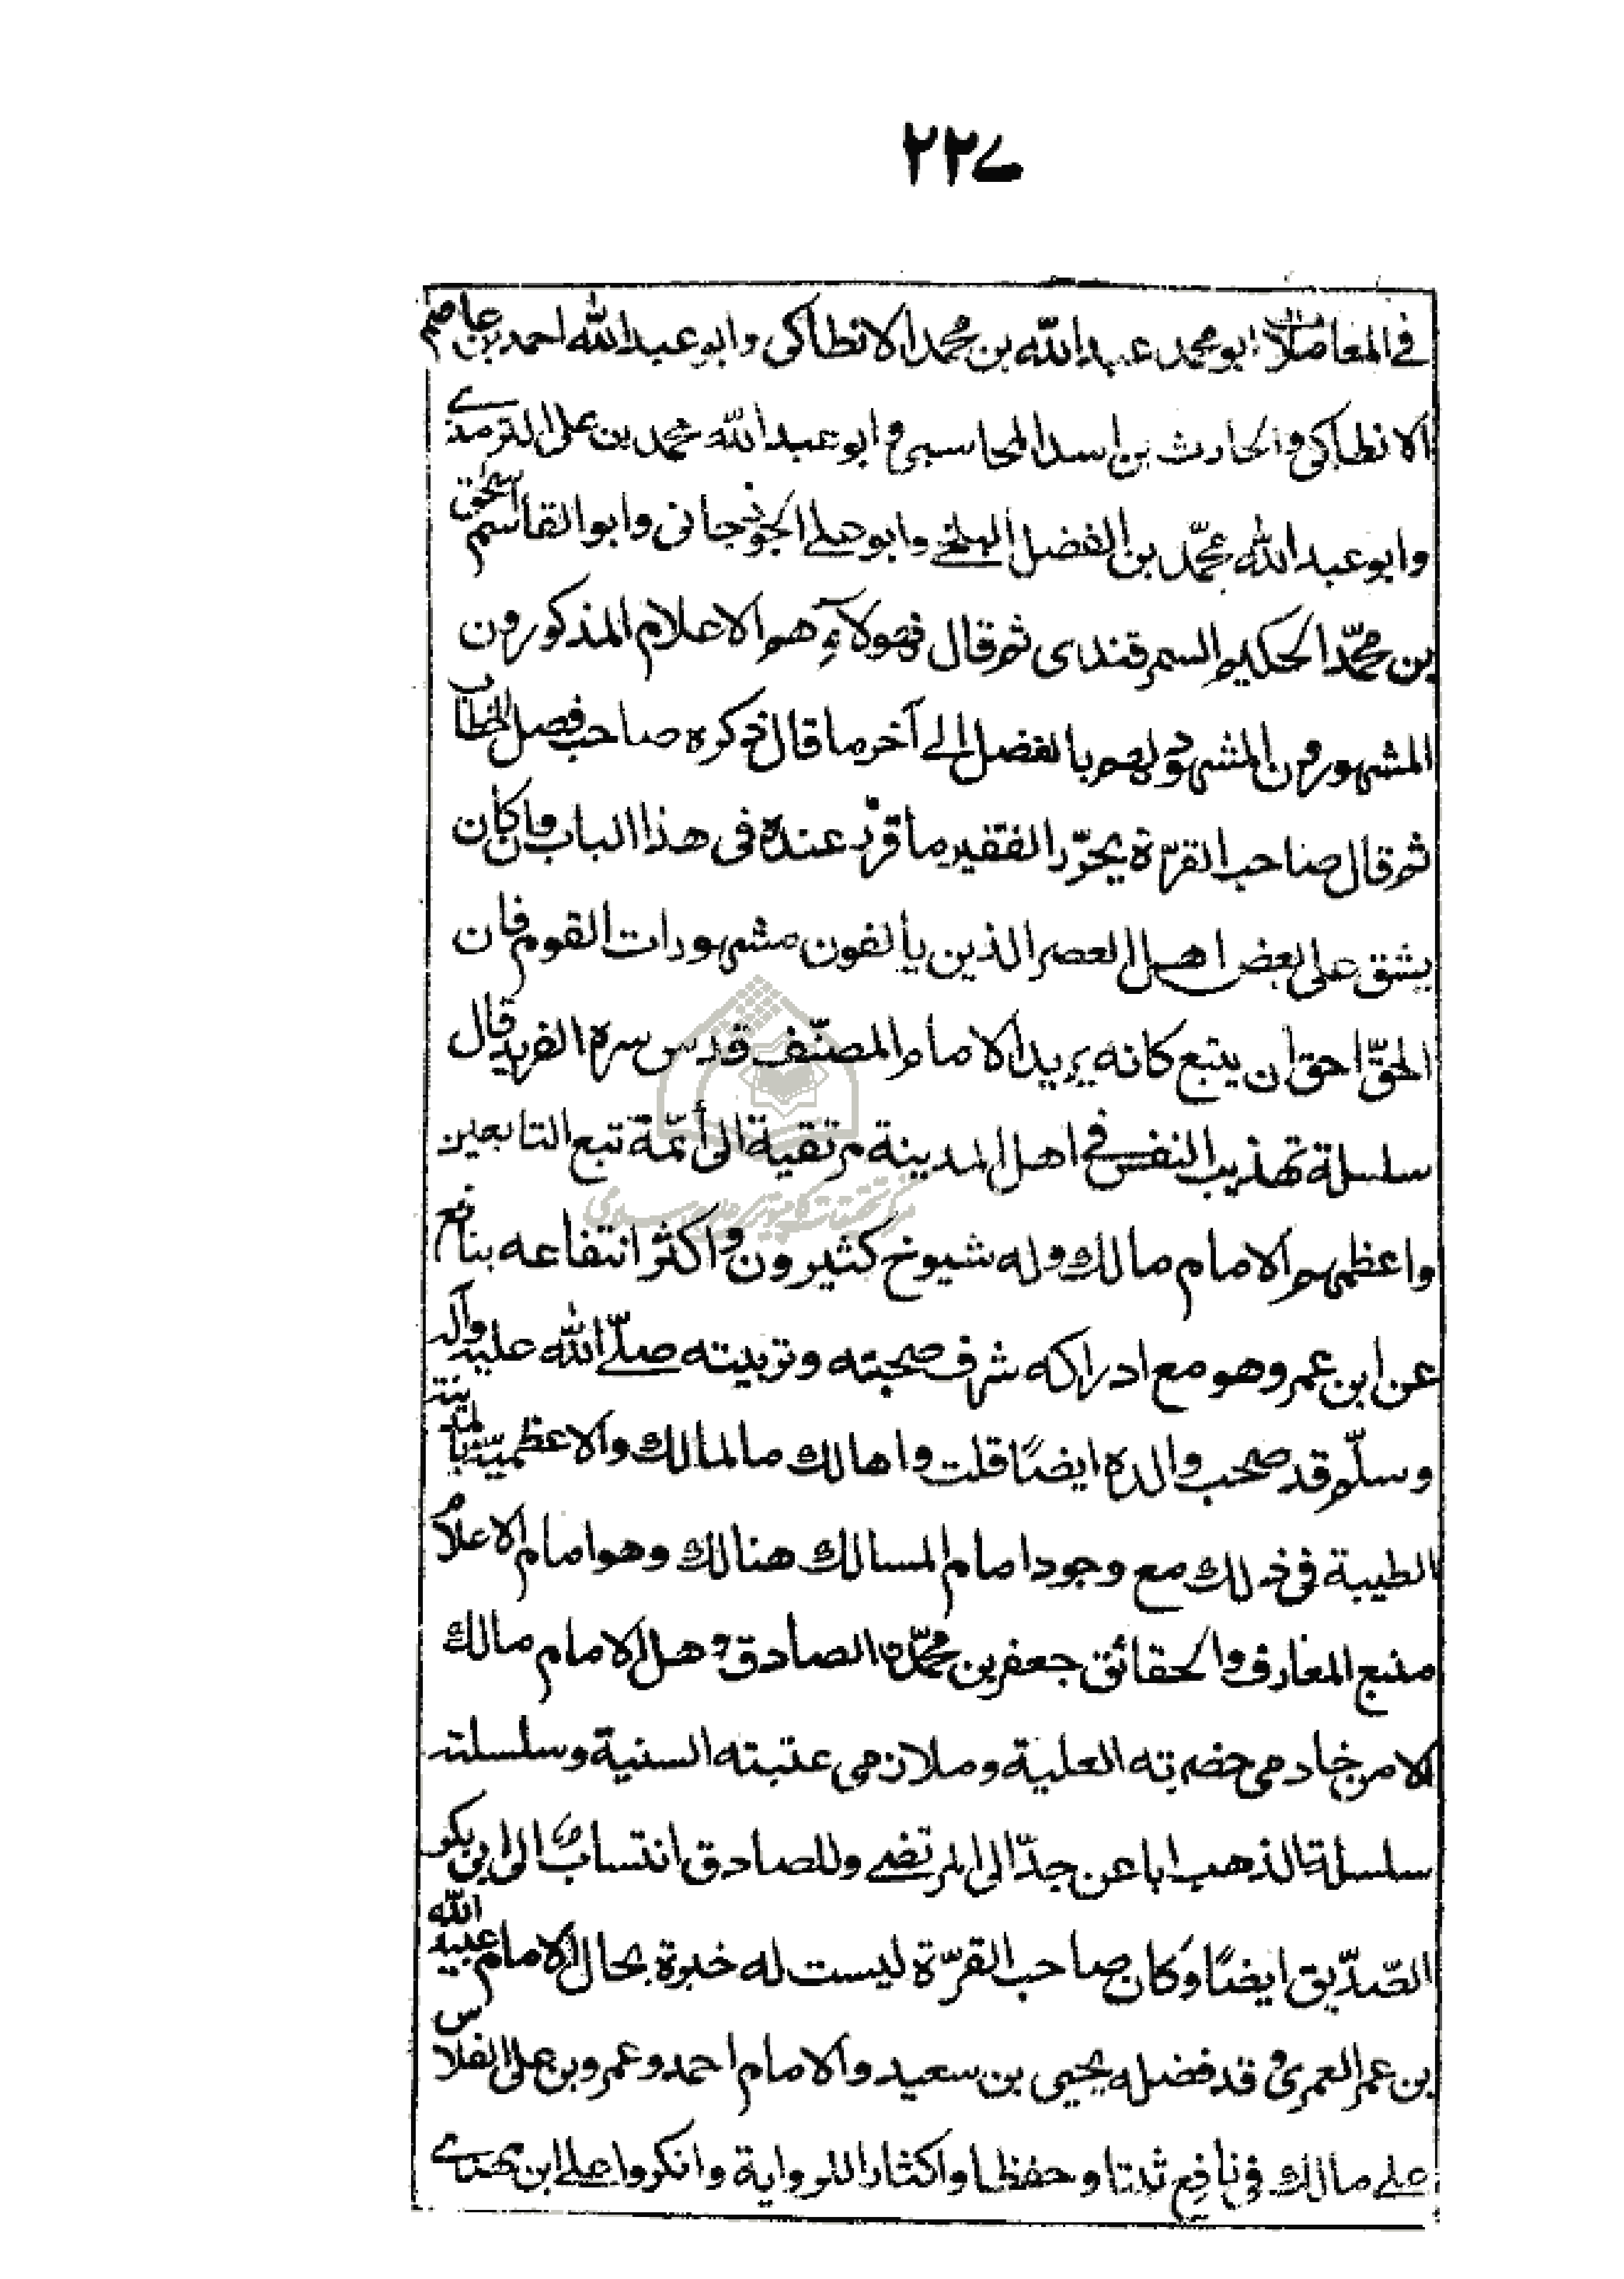 ٢٢٧
في المعاملات ابو محمد عبد الله بن محمد الانطاكى وابو عبد الله احمد بن عاصم
الانطاكى والحارث بن اسد المحاسبى وابو عبد الله محمد بن على الترمذے
وابو عبد الله محمّد بن الفضل البلخے وابو علے الجوزجانى وابو القاسم اسحق
بن محمّد الحكيم السمرقندى ثم قال فهولآءِ هم الاعلام المذكورون
المشهورون المشهود لهم بالفضل الى آخر ما قال ذكره صاحب فصل الخطاب
ثم قال صاحب القرّة يحرّر الفقير ما قرّر عنده فى هذا الباب وان كان
يشق على بعض اهل العصر الذين يألفون مشهورات القوم فان
الحقّ احق ان يتبع كانه يريد الامام المصنّف قدس سره الفريد قال
سلسلة تهذيب النفس فے اهل المدينة مرتقية الى أئمّة تبع التابعين
واعظمهم الامام مالك وله شيوخ كثيرون واكثر انتفاعه بنافع
عن ابن عمر وهو مع ادراكه شرف صحبته وتربيته صلّے الله عليه وآله
وسلّم قد صحب والده ايضًا قلت واهالك مالمالك والاعظميّة بالمدينة
الطيبة فى ذلك مع وجود امام المسالك هنالك وهو امام الاعلام
منبع المعارف والحقائق جعفر بن محمّدن الصادق وهل الامام مالك
الا من خادمى حضرته العلية وملازمى عتبته السنية وسلسلته
سلسلة الذهب ابا عن جدّ الى المرتضے وللصادق انتساب الى ابى بكر
الصّدّيق ايضًا وكان صاحب القرّة ليست له خبرة بحال الامام عبيد الله
بن عمر العمرى وقد فضله يحيى بن سعيد والامام احمد وعمرو بن على الفلاس
علے مالك فى نافع ثبتا وحفظا واكثارا للرواية وانكروا علے ابن مهدے